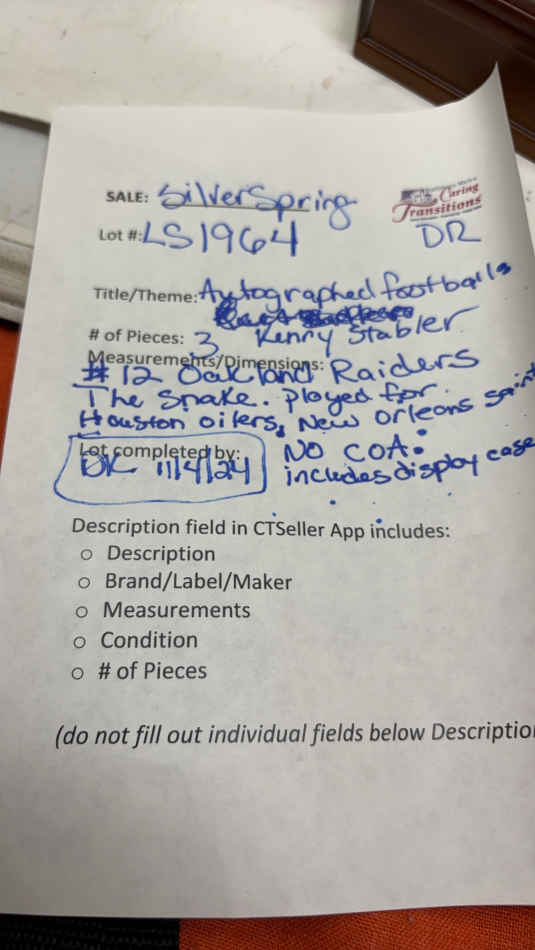 SALE: SilverSpring
Caring
Transitions
Lot #: LS1964
DR
Title/Theme: Autographed footballs
# of Pieces: 3 Kenny Stabler.
Measurements/Dimensions:
#12 Oakland Raiders
The Snake. Played for
Houston oilers, New Orleans Saint
Lot completed by: NO COA.
DR 11/4/24 includes display case
Description field in CTSeller App includes:
○ Description
○ Brand/Label/Maker
○ Measurements
○ Condition
○ # of Pieces
(do not fill out individual fields below Descriptio